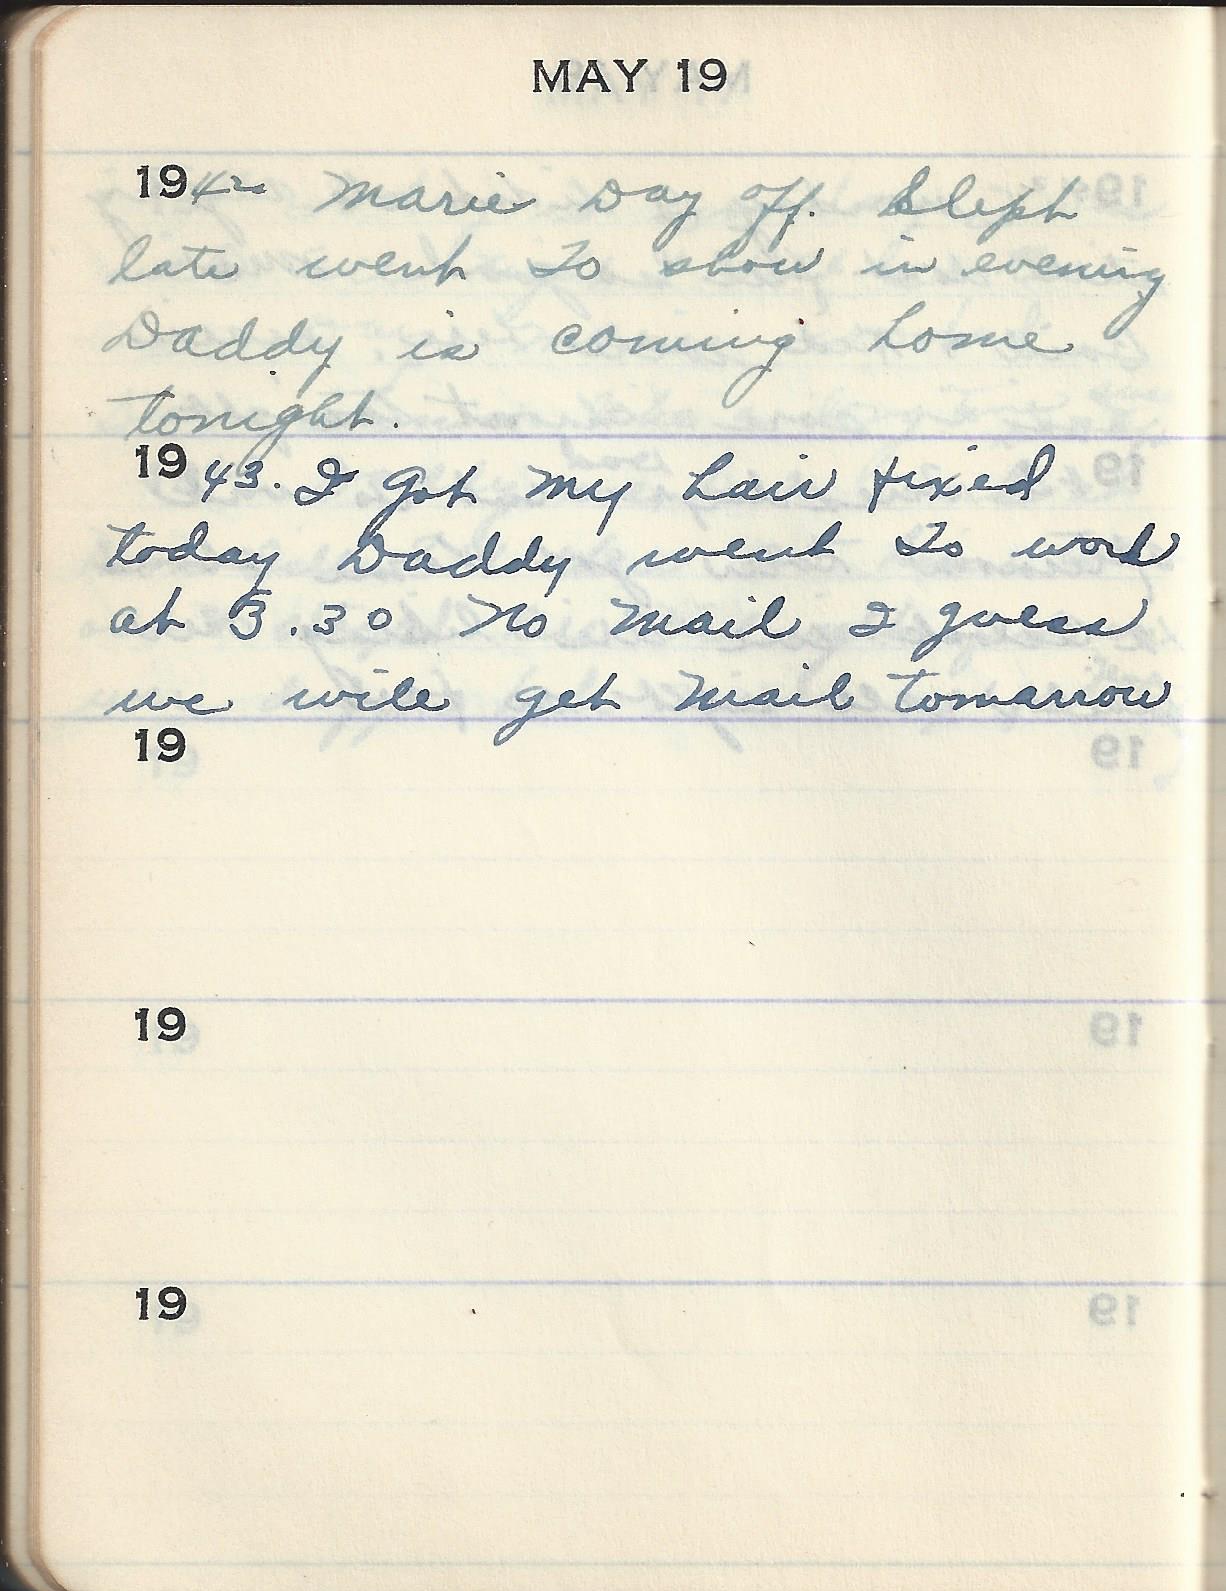 MAY 19
1942 Marie Day off. Slept
late went to show in evening
Daddy is coming home
tonight.
1943. I got my hair fixed
today Daddy went to work
at 3.30 No mail I guess
we will get mail tomarrow
19
19
19